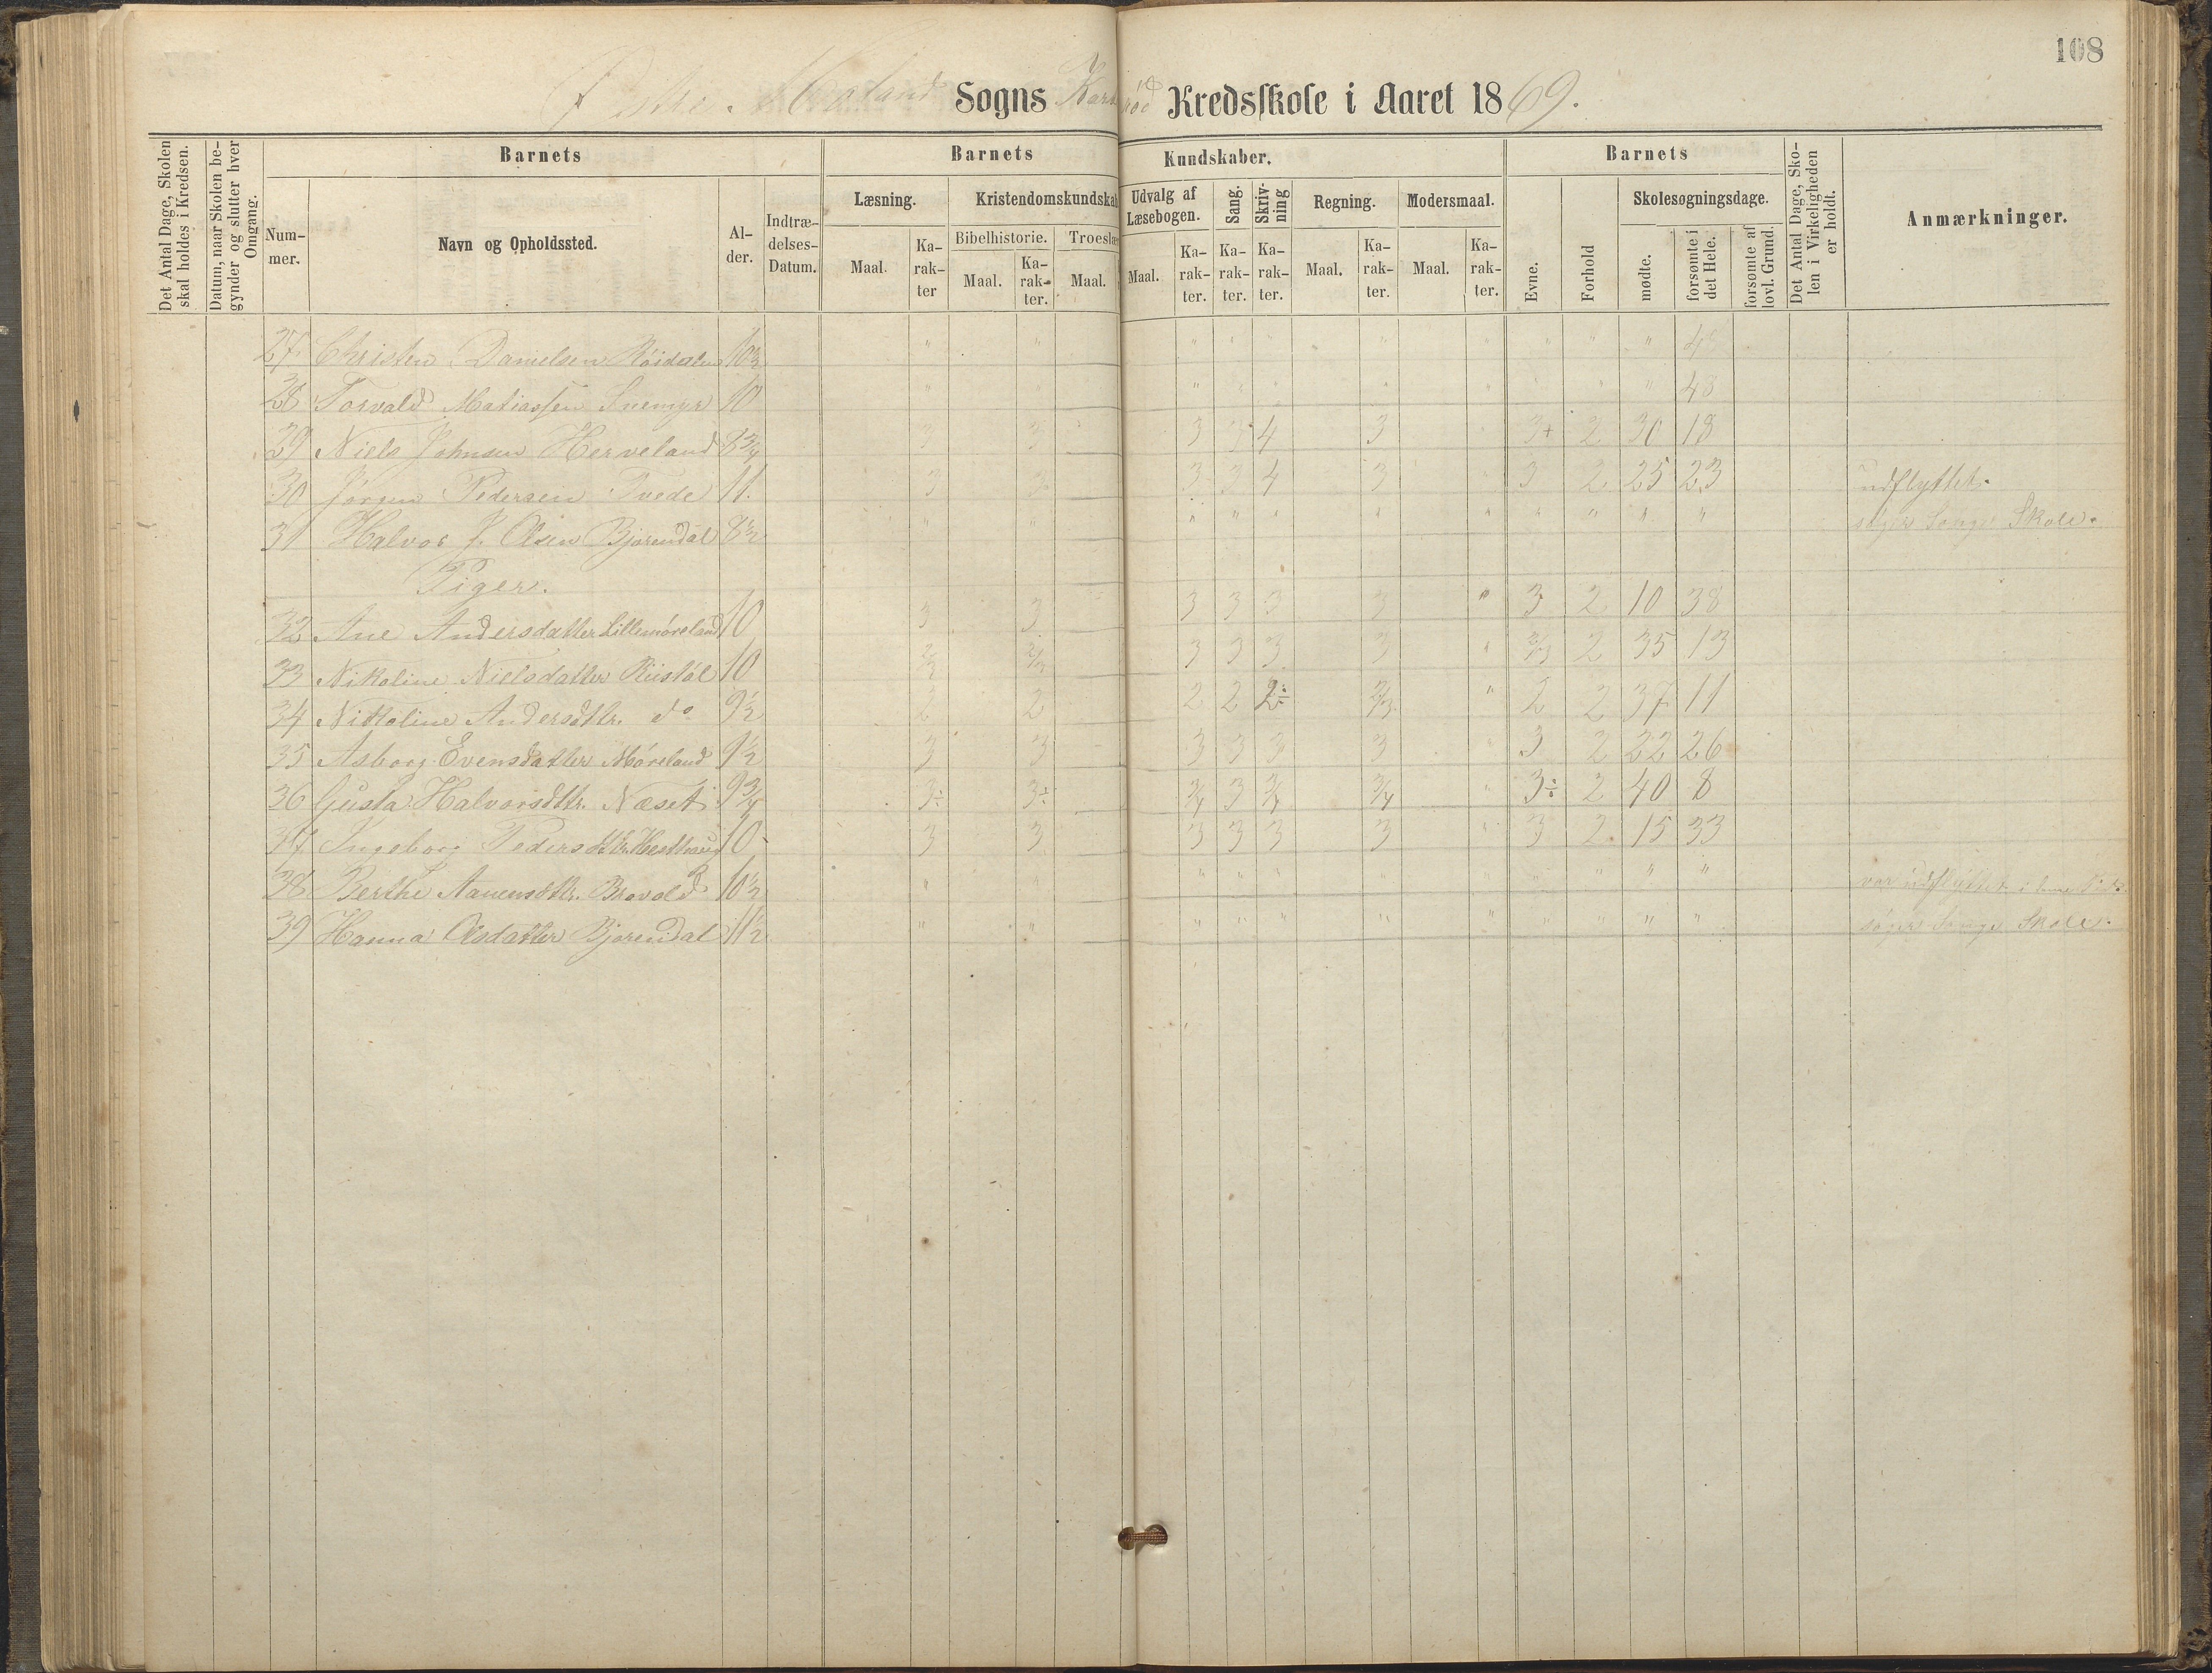 108
Østre Moland Sogns Kredsskole i Aaret 1869.
Det Antal Dage, Skolen skal holdes i Kredsen.
Datum, naar Skolen begynder og slutter hver Omgang.
Barnets
Nummer.
Navn og Opholdssted.
Alder.
Indtrædelses-Datum.
Barnets Kundskaber.
Læsning.
Maal.
Karakter
Kristendomskundskab
Bibelhistorie.
Maal.
Karakter.
Troeslære
Maal.
Udvalg af Læsebogen.
Maal.
Karakter.
Sang.
Karakter.
Skrivning
Karakter.
Regning.
Maal.
Karakter.
Modersmaal.
Maal.
Karakter.
Barnets
Evne.
Forhold
Skolesøgningsdage.
mødte.
forsømte i det Hele.
forsømte af lovl. Grund.
Det Antal Dage, Skolen i Virkeligheden er holdt.
Anmærkninger.
27 Christen Danielsen Röisdalen 10½ " " " " " " " " " " 48
28 Torvald Matiassen Snemyr 10 " " " " " " " " " " 48
29 Niels Johnsen Herveland 8¾ 3 3 3 3 4 3 " 3+ 2 30 18
30 Jörgen Pedersen Tvede 11. 3 3 3 3 4 3 " 3 2 25 23 udflyttet.
31 Halvor J. Olsen Bjorendal 8½ " " " " " " " " " " " söger Songe Skole.
Piger.
32 Ane Andersdatter Lillemöreland 10 3 3 3 3 3 3 " 3 2 10 38
33 Nikoline Nielsdatter Riistöl 10 2/3 2/3 3 3 3 3 " 2/3 2 35 13
34 Nikoline Andersdttr. do 9½ 2 2 2 2 2÷ 2/3 " 2 2 37 11
35 Asborg Evensdatter Möreland 9½ 3 3 3 3 3 3 " 3 2 22 26
36 Gusta Halvorsdttr. Næset 9¾ 3÷ 3÷ 3/4 3 3/4 3/4 " 3÷ 2 40 8
37 Ingeborg Pedersdttr. Hesthaug 10 3 3 3 3 3 3 " 3 2 15 33
38 Berthe Aanensdttr. Bravold 10½ " " " " " " " " " " " var udflyttet i
39 Hanna Olsdatter Bjorendal 11½ " " " " " " " " " " " söger Songe Skole.